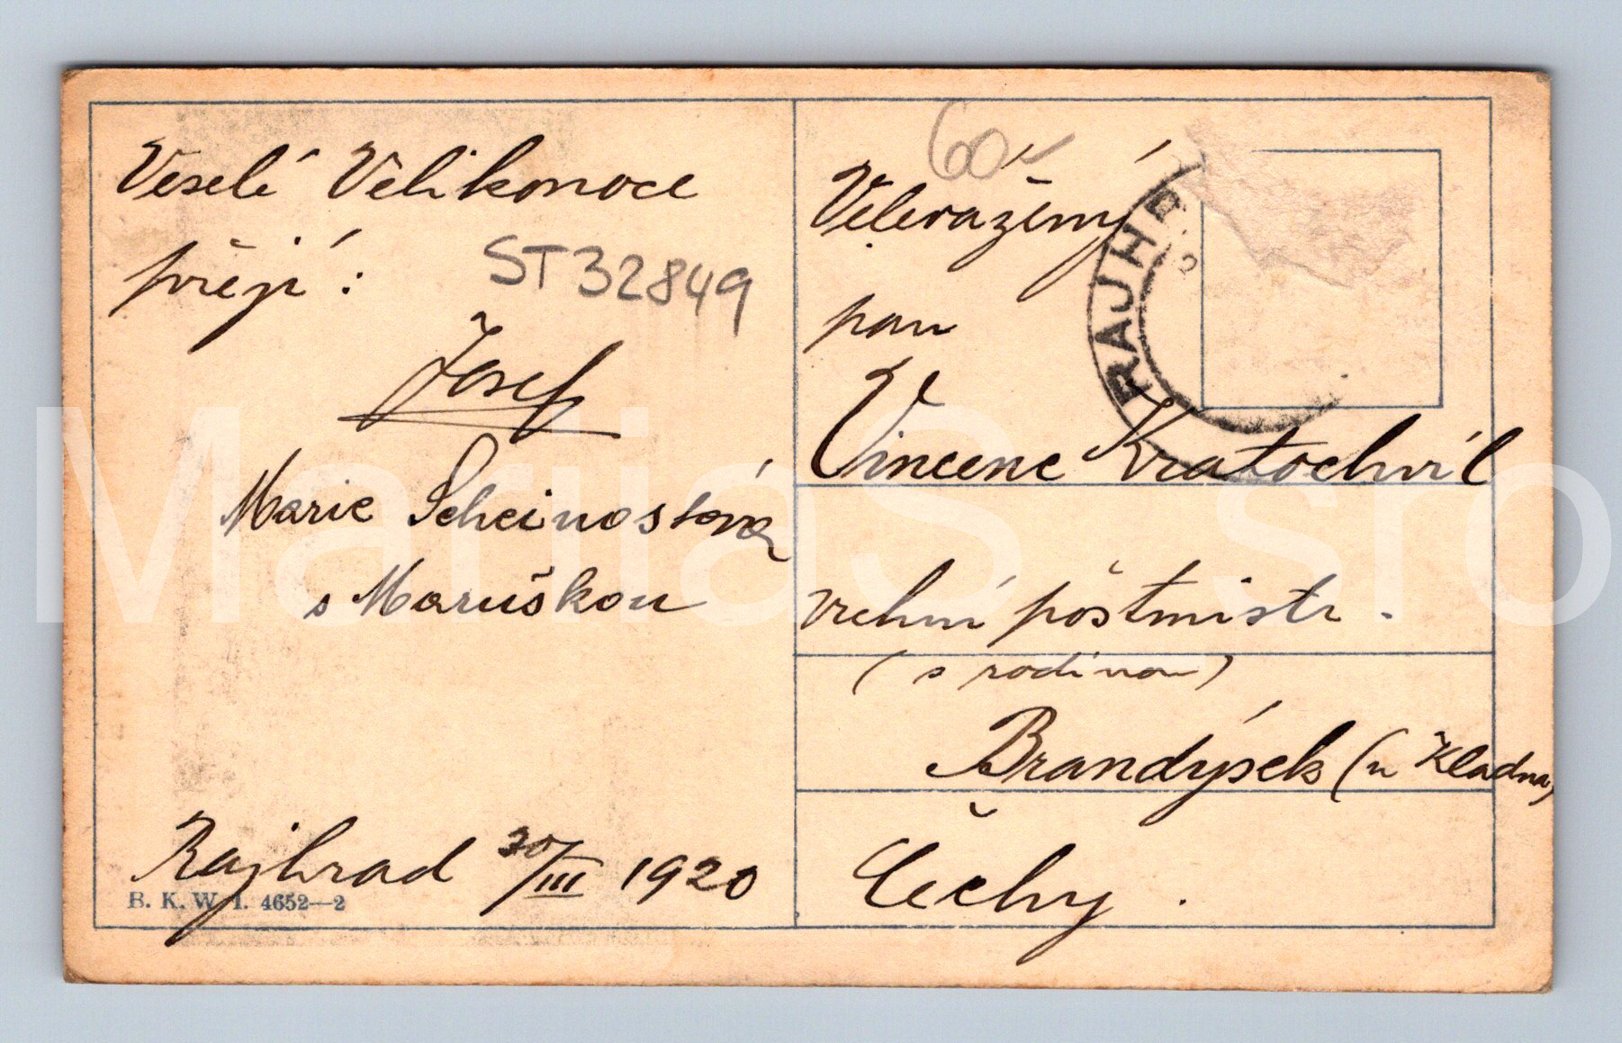 Veselé Velikonoce
přejí :
ST32849
Josef
Marie Scheinostová
s Maruškou
Rajhrad 30/III 1920
B. K. W. I. 4652—2
60
Velevážený
pan
RAJHR
Vincenc Kratochvíl
vrchní poštmistr.
(s rodinou)
Brandýsek (u Kladna)
Čechy.
MarijaS sro